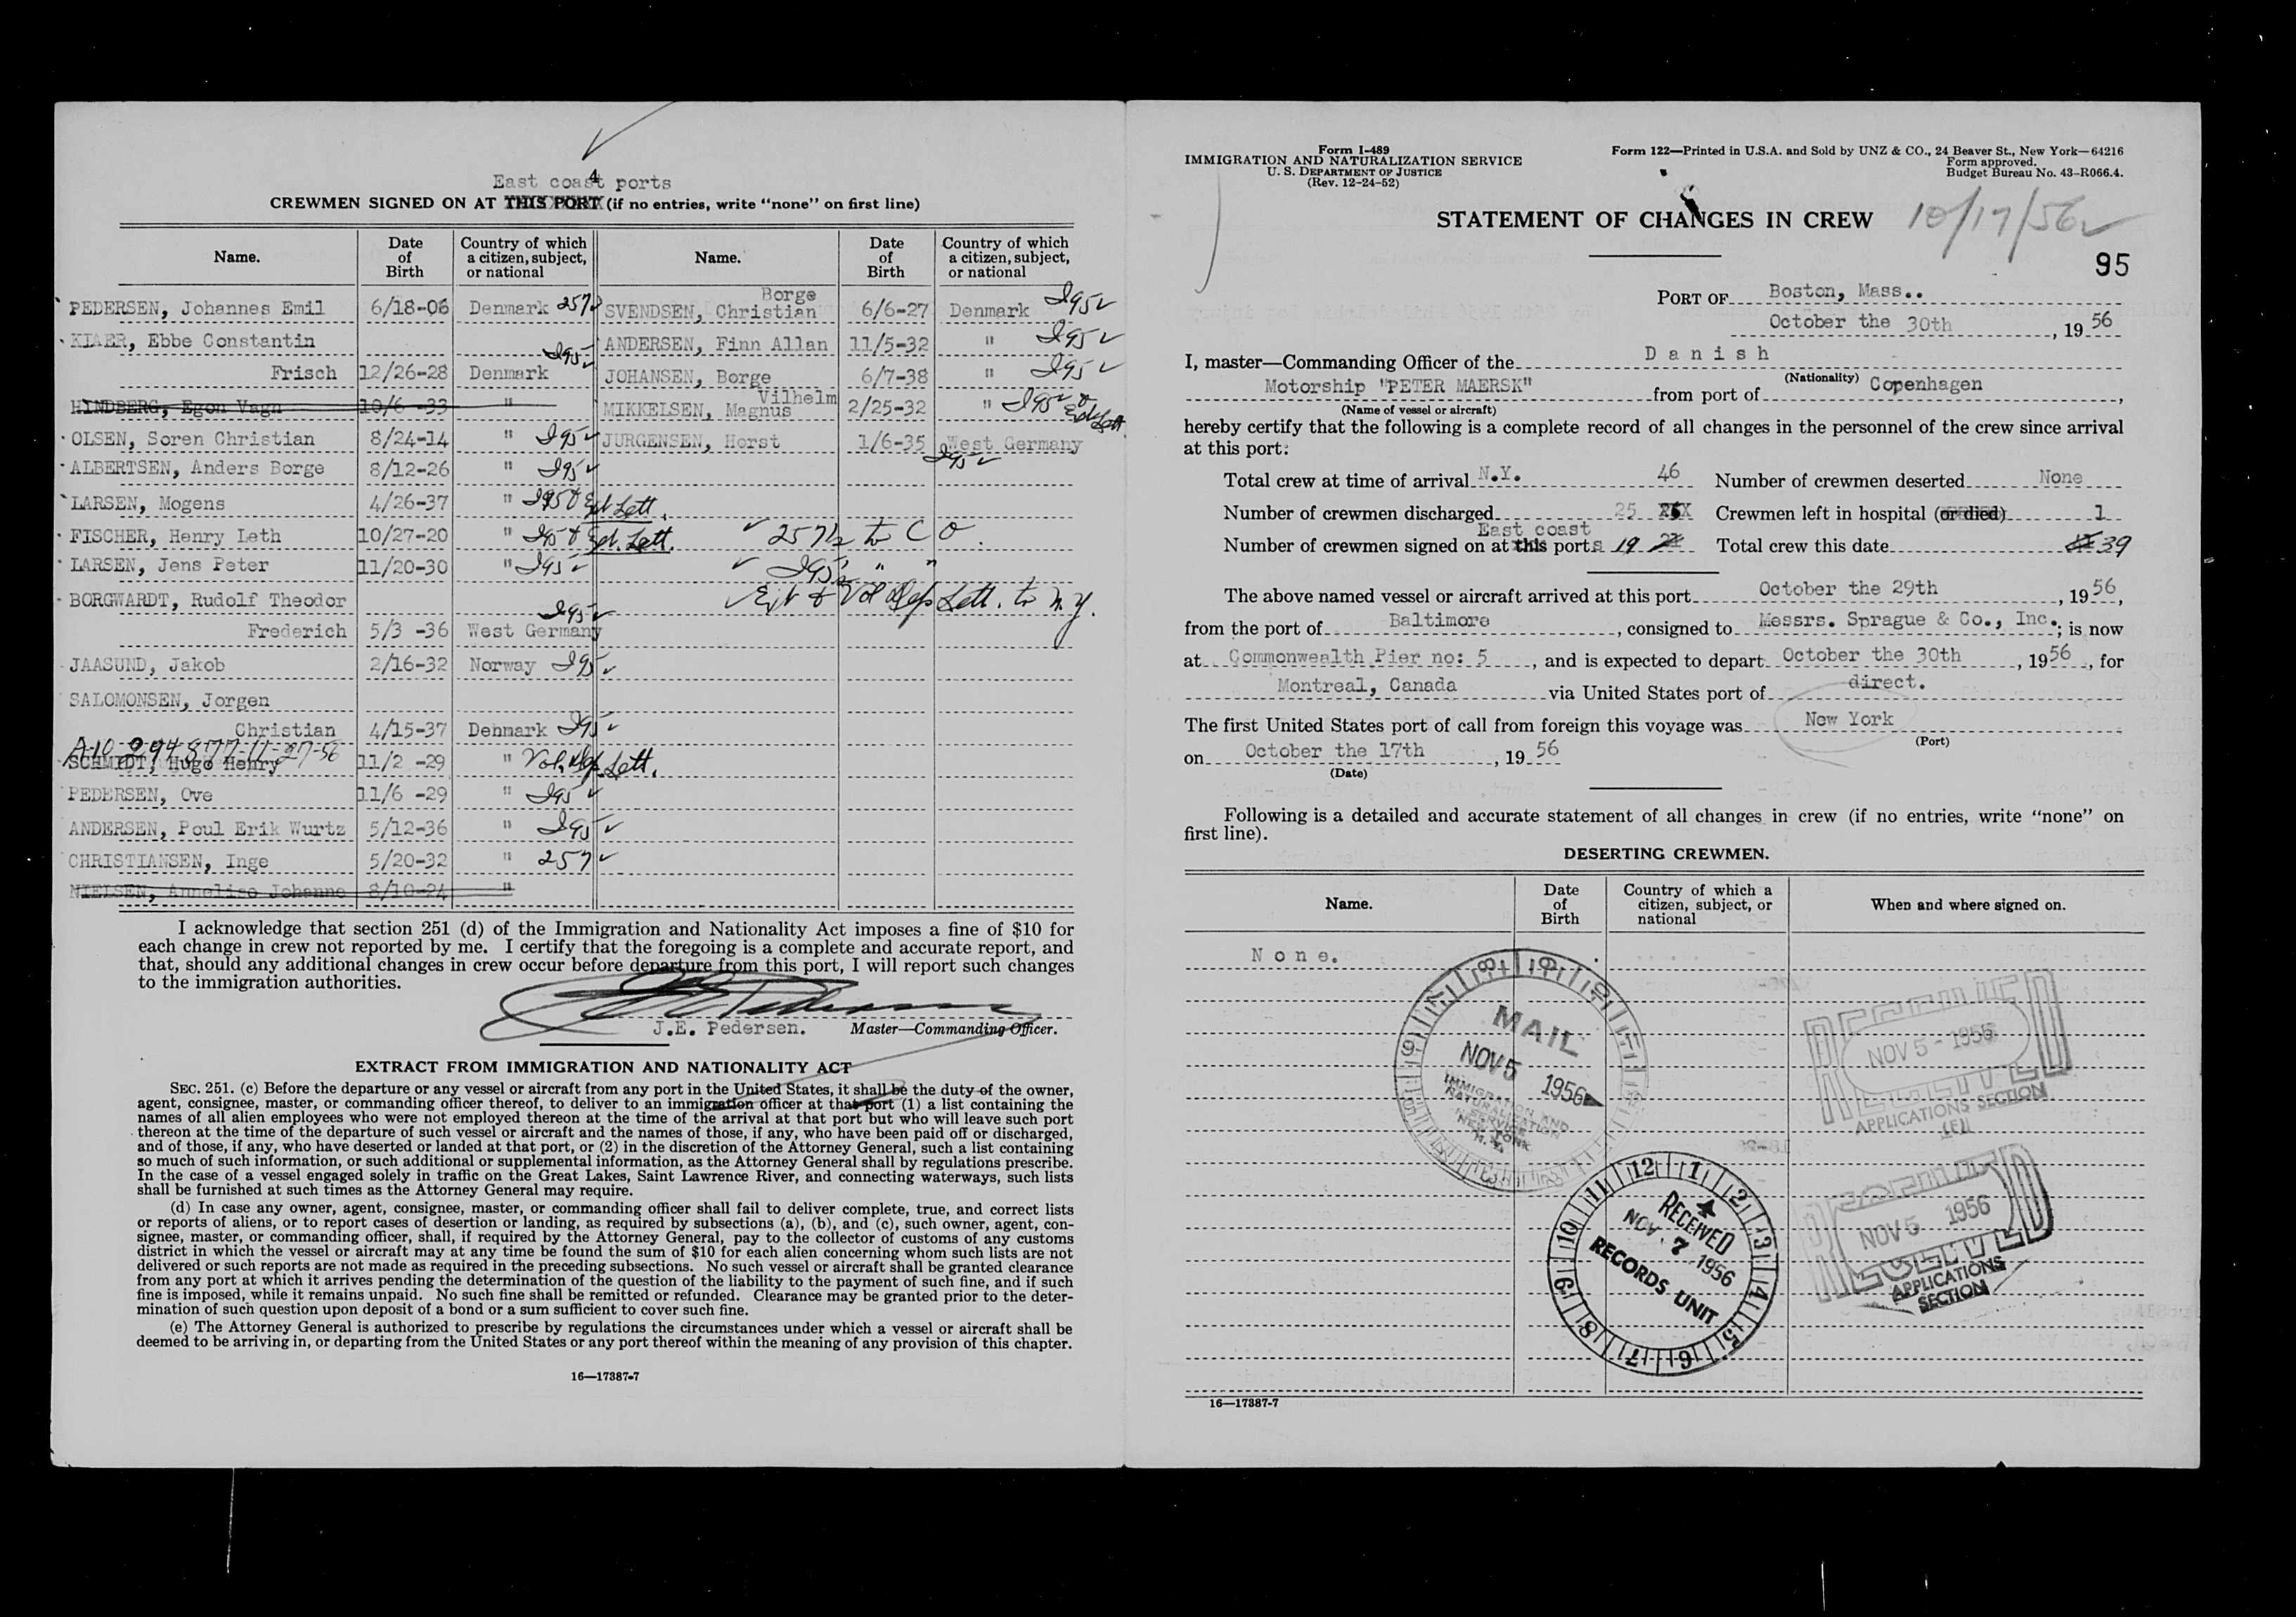 East coast ports
4
CREWMEN SIGNED ON AT THIS PORT (if no entries, write "none" on first line)
Name. Date of Birth Country of which a citizen, subject, or national Name. Date of Birth Country of which a citizen, subject, or national
PEDERSEN, Johannes Emil 6/18-06 Denmark 257 SVENDSEN, Christian Borge 6/6-27 Denmark I95
KIAER, Ebbe Constantin ANDERSEN, Finn Allan 11/5-32 " I95
Frisch 12/26-28 Denmark I95 JOHANSEN, Borge 6/7-38 " I95
HINDBERG, Egon Vagn 10/6 -33 " MIKKELSEN, Magnus Vilhelm 2/25-32 " I95
OLSEN, Soren Christian 8/24-14 " I95 JURGENSEN, Horst 1/6-35 West Germany I95
ALBERTSEN, Anders Borge 8/12-26 " I95
LARSEN, Mogens 4/26-37 " I95 & Lett.
FISCHER, Henry Leth 10/27-20 " I95 & Lett. 257's to C O.
LARSEN, Jens Peter 11/20-30 " I95 I95's " "
BORGWARDT, Rudolf Theodor & Vol Dep Lett. to N.Y.
Frederich 5/3 -36 West Germany I95
JAASUND, Jakob 2/16-32 Norway I95
SALOMONSEN, Jorgen
Christian 4/15-37 Denmark I95
A-10-294877-11-27-56
SCHMIDT, Hugo Henry 11/2 -29 " Vol. Dep. Lett.
PEDERSEN, Ove 11/6 -29 " I95
ANDERSEN, Poul Erik Wurtz 5/12-36 " I95
CHRISTIANSEN, Inge 5/20-32 " 257
NIELSEN, Annelise Johanne 8/10-24 "
I acknowledge that section 251 (d) of the Immigration and Nationality Act imposes a fine of $10 for
each change in crew not reported by me. I certify that the foregoing is a complete and accurate report, and
that, should any additional changes in crew occur before departure from this port, I will report such changes
to the immigration authorities.
J.E. Pedersen. Master—Commanding Officer.
EXTRACT FROM IMMIGRATION AND NATIONALITY ACT
SEC. 251. (c) Before the departure or any vessel or aircraft from any port in the United States, it shall be the duty of the owner,
agent, consignee, master, or commanding officer thereof, to deliver to an immigration officer at that port (1) a list containing the
names of all alien employees who were not employed thereon at the time of the arrival at that port but who will leave such port
thereon at the time of the departure of such vessel or aircraft and the names of those, if any, who have been paid off or discharged,
and of those, if any, who have deserted or landed at that port, or (2) in the discretion of the Attorney General, such a list containing
so much of such information, or such additional or supplemental information, as the Attorney General shall by regulations prescribe.
In the case of a vessel engaged solely in traffic on the Great Lakes, Saint Lawrence River, and connecting waterways, such lists
shall be furnished at such times as the Attorney General may require.
(d) In case any owner, agent, consignee, master, or commanding officer shall fail to deliver complete, true, and correct lists
or reports of aliens, or to report cases of desertion or landing, as required by subsections (a), (b), and (c), such owner, agent, con-
signee, master, or commanding officer, shall, if required by the Attorney General, pay to the collector of customs of any customs
district in which the vessel or aircraft may at any time be found the sum of $10 for each alien concerning whom such lists are not
delivered or such reports are not made as required in the preceding subsections. No such vessel or aircraft shall be granted clearance
from any port at which it arrives pending the determination of the question of the liability to the payment of such fine, and if such
fine is imposed, while it remains unpaid. No such fine shall be remitted or refunded. Clearance may be granted prior to the deter-
mination of such question upon deposit of a bond or a sum sufficient to cover such fine.
(e) The Attorney General is authorized to prescribe by regulations the circumstances under which a vessel or aircraft shall be
deemed to be arriving in, or departing from the United States or any port thereof within the meaning of any provision of this chapter.
16—17387-7
Form I-489
IMMIGRATION AND NATURALIZATION SERVICE
U. S. DEPARTMENT OF JUSTICE
(Rev. 12-24-52)
Form 122—Printed in U.S.A. and Sold by UNZ & CO., 24 Beaver St., New York—64216
Form approved.
Budget Bureau No. 43-R066.4.
STATEMENT OF CHANGES IN CREW 10/17/56
95
PORT OF Boston, Mass..
October the 30th, 19 56
I, master—Commanding Officer of the Danish
(Nationality)
Motorship "PETER MAERSK" from port of Copenhagen,
(Name of vessel or aircraft)
hereby certify that the following is a complete record of all changes in the personnel of the crew since arrival
at this port:
Total crew at time of arrival N.Y. 46 Number of crewmen deserted None
Number of crewmen discharged 25 Crewmen left in hospital (or died) 1
East coast
Number of crewmen signed on at this ports 19 Total crew this date 39
The above named vessel or aircraft arrived at this port October the 29th, 19 56,
from the port of Baltimore, consigned to Messrs. Sprague & Co., Inc.; is now
at Commonwealth Pier no: 5, and is expected to depart October the 30th, 19 56, for
Montreal, Canada via United States port of direct.
The first United States port of call from foreign this voyage was New York
(Port)
on October the 17th, 19 56
(Date)
Following is a detailed and accurate statement of all changes in crew (if no entries, write "none" on
first line).
DESERTING CREWMEN.
Name. Date of Birth Country of which a citizen, subject, or national When and where signed on.
None.
MAIL
NOV 5 1956
IMMIGRATION AND
NATURALIZATION
SERVICE
NEW YORK
N.Y.
RECEIVED
NOV 5 - 1956
APPLICATIONS SECTION
12 1 2 3 4 5 6 7 8 9 10 11
RECEIVED
NOV. 7 1956
RECORDS UNIT
RECEIVED
NOV 5 1956
APPLICATIONS
SECTION
16—17387-7